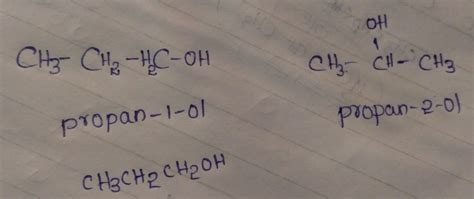 CH3- CH2 -H2C-OH
propan-1-ol
CH3CH2CH2OH
OH
CH3- CH- CH3
propan-2-ol